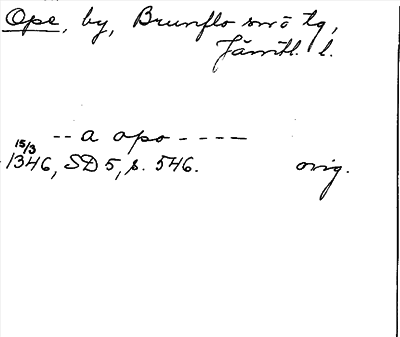 Ope, by, Brunflo sn̄o tg,
Jämtl. l.
-- a opo ----
15/3
1346, SD 5, s. 546. orig.